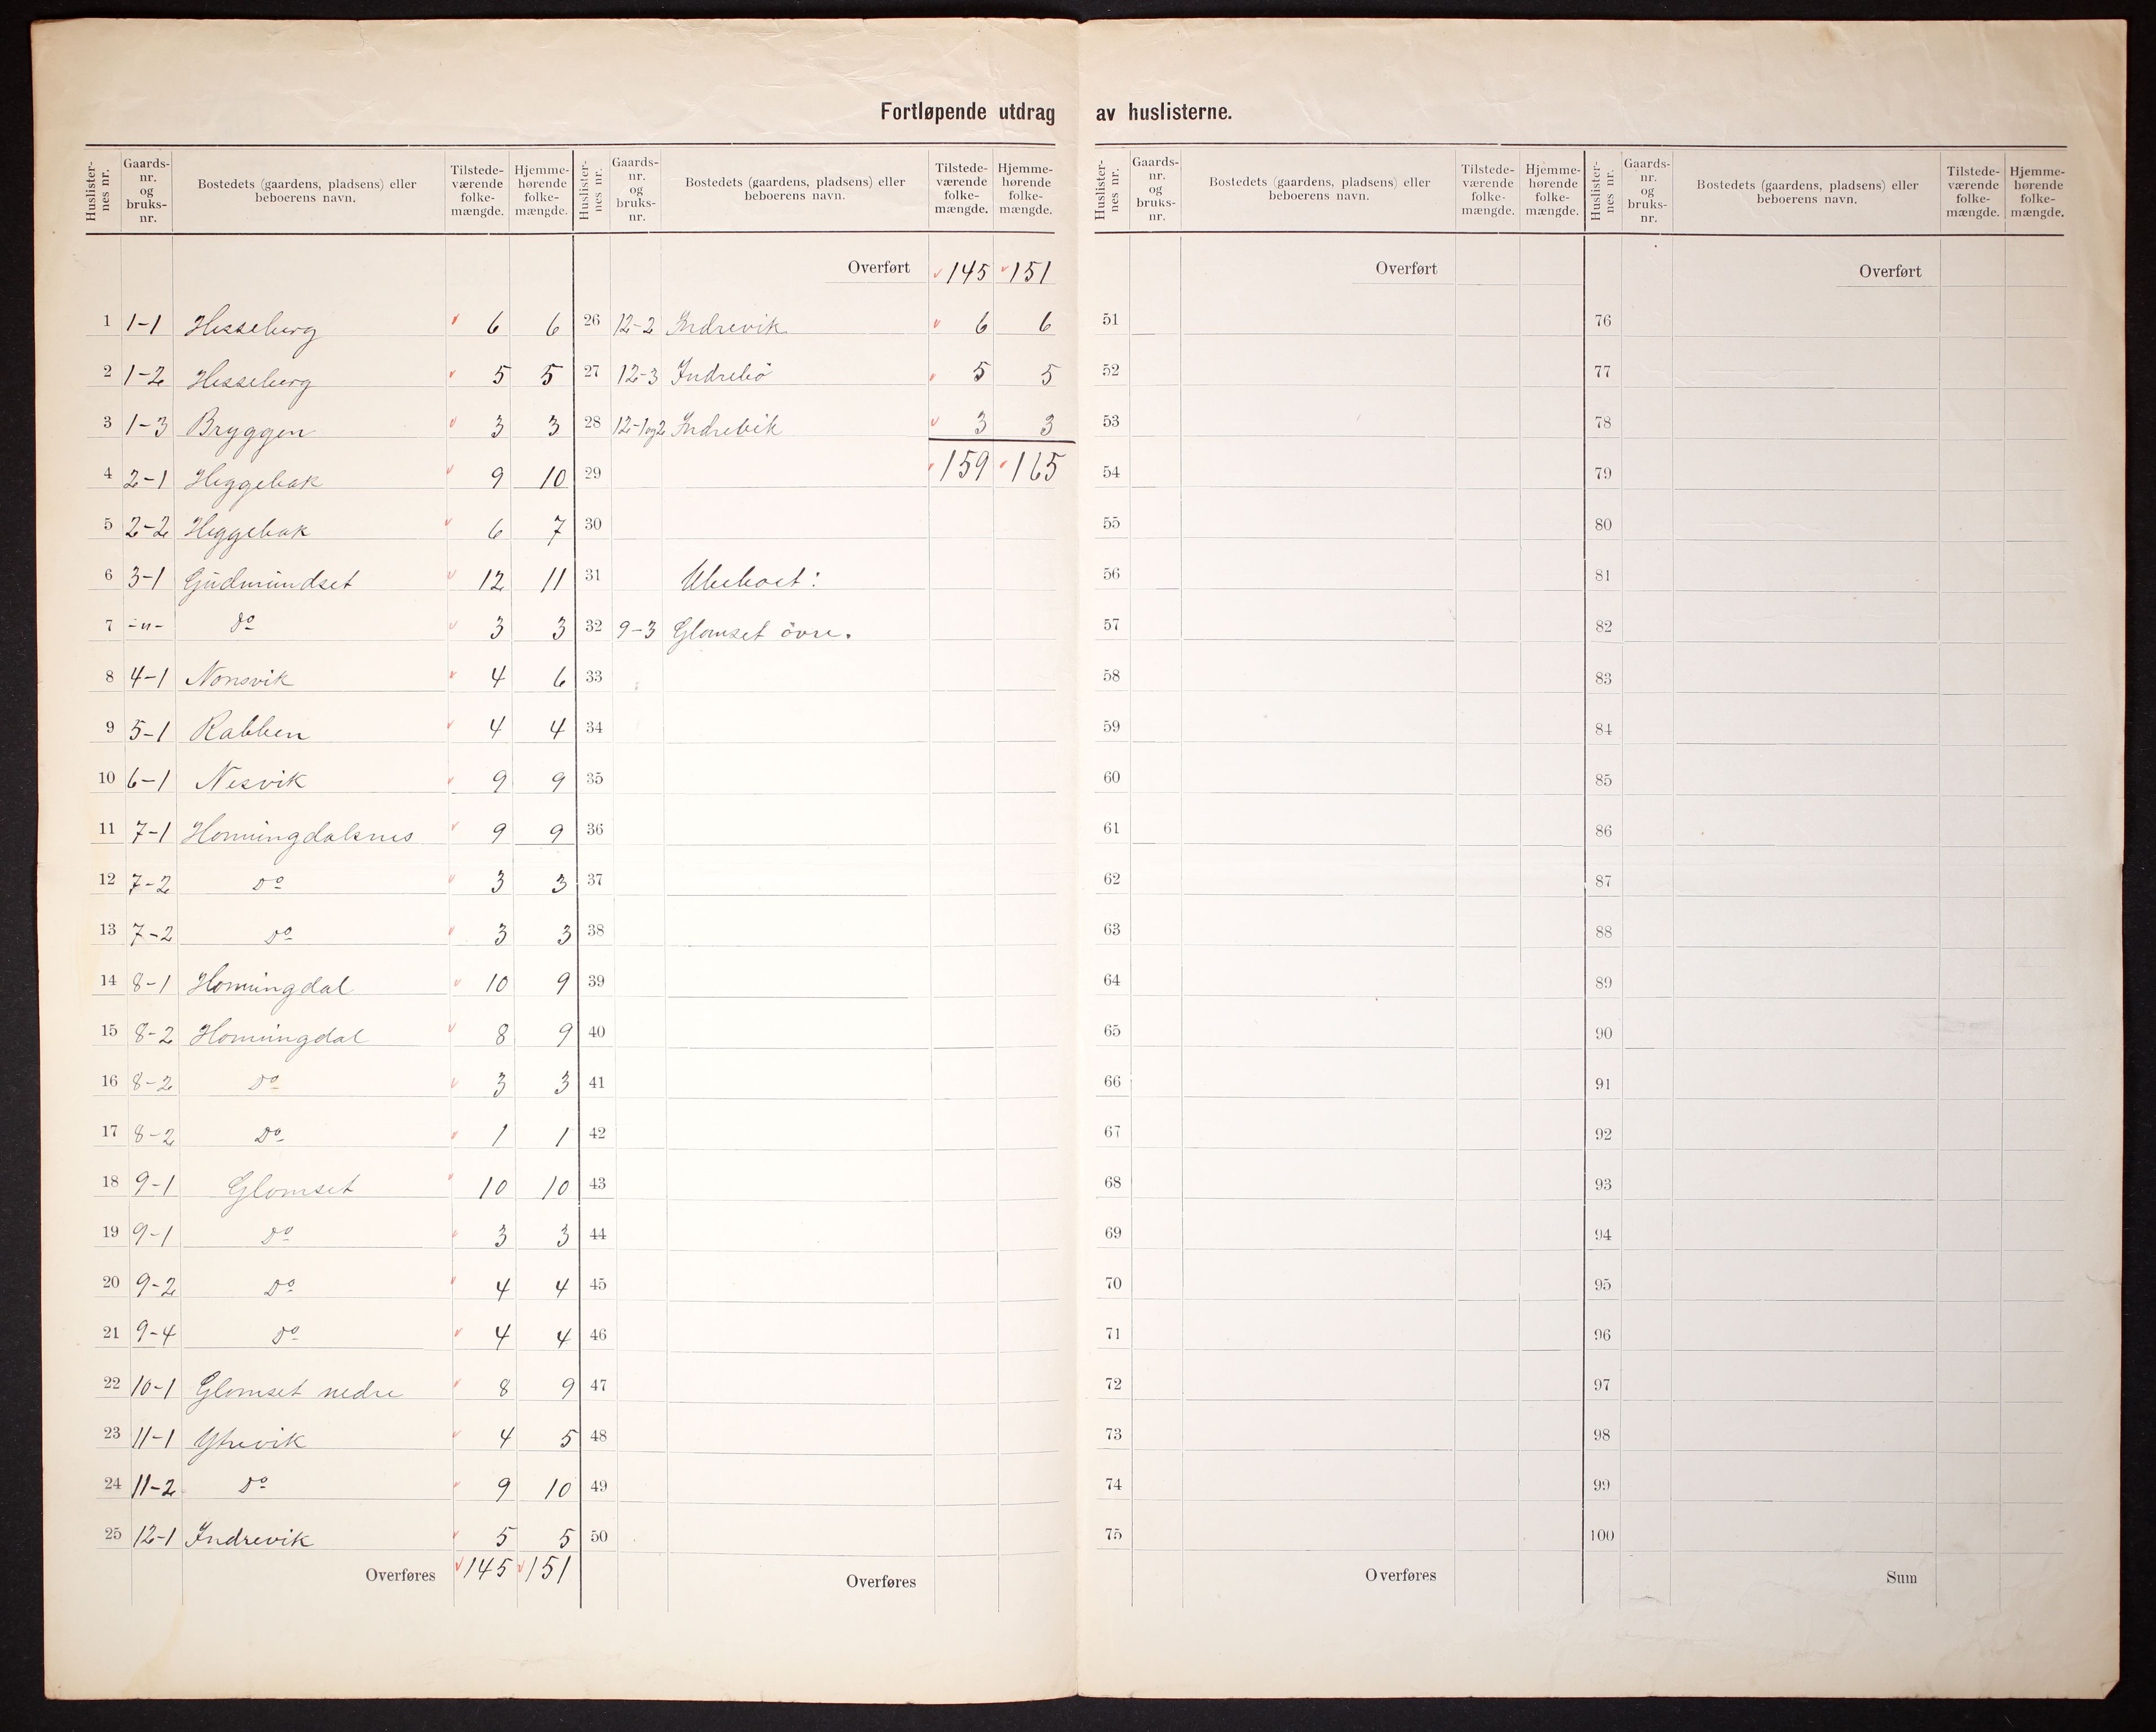 Fortløpende utdrag av huslisterne.
Huslisternes nr. Gaards-nr. og bruks-nr. Bostedets (gaardens, pladsens) eller beboerens navn. Tilstede-værende folke-mængde. Hjemme-hørende folke-mængde.
1 1-1 Hesseberg 6 6
2 1-2 Hesseberg 5 5
3 1-3 Bryggen 3 3
4 2-1 Heggebak 9 10
5 2-2 Heggebak 6 7
6 3-1 Gudmundset 12 11
7 -"- Do 3 3
8 4-1 Nonsvik 4 6
9 5-1 Rabben 4 4
10 6-1 Nesvik 9 9
11 7-1 Honningdalsnes 9 9
12 7-2 Do 3 3
13 7-2 Do 3 3
14 8-1 Honningdal 10 9
15 8-2 Honningdal 8 9
16 8-2 Do 3 3
17 8-2 Do 1 1
18 9-1 Glomset 10 10
19 9-1 Do 3 3
20 9-2 Do 4 4
21 9-4 Do 4 4
22 10-1 Glomset nedre 8 9
23 11-1 Ytrevik 4 5
24 11-2 Do 9 10
25 12-1 Indrevik 5 5
Overføres 145 151
Huslisternes nr. Gaards-nr. og bruks-nr. Bostedets (gaardens, pladsens) eller beboerens navn. Tilstede-værende folke-mængde. Hjemme-hørende folke-mængde.
Overført 145 151
26 12-2 Indrevik 6 6
27 12-3 Indrebö 5 5
28 12-1og2 Indrebik 3 3
29 159 165
30
31 Ubeboet:
32 9-3 Glomset övre.
33
34
35
36
37
38
39
40
41
42
43
44
45
46
47
48
49
50
Overføres
Huslisternes nr. Gaards-nr. og bruks-nr. Bostedets (gaardens, pladsens) eller beboerens navn. Tilstede-værende folke-mængde. Hjemme-hørende folke-mængde.
Overført
51
52
53
54
55
56
57
58
59
60
61
62
63
64
65
66
67
68
69
70
71
72
73
74
75
Overføres
Huslisternes nr. Gaards-nr. og bruks-nr. Bostedets (gaardens, pladsens) eller beboerens navn. Tilstede-værende folke-mængde. Hjemme-hørende folke-mængde.
Overført
76
77
78
79
80
81
82
83
84
85
86
87
88
89
90
91
92
93
94
95
96
97
98
99
100
Sum